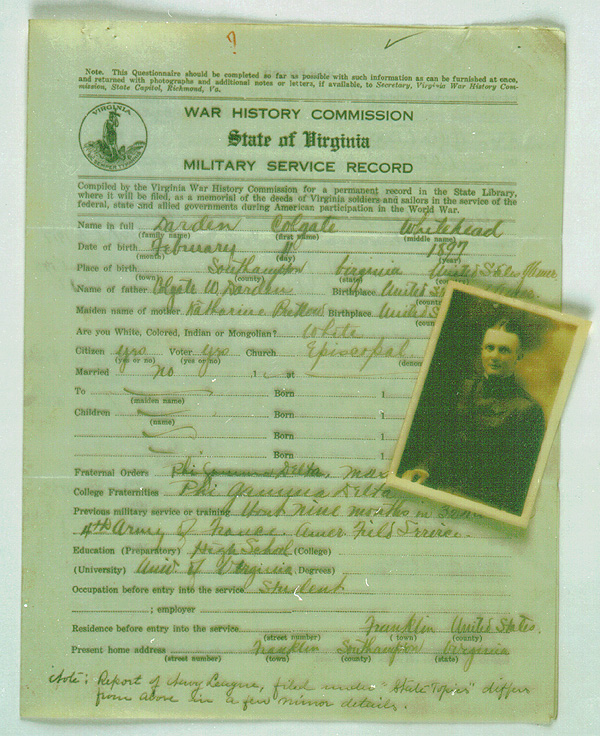 ?
Note. This Questionnaire should be completed so far as possible with such information as can be furnished at once,
and returned with photographs and additional notes or letters, if available, to Secretary, Virginia War History Com-
mission, State Capitol, Richmond, Va.
VIRGINIA
SIC SEMPER TYRANNIS
WAR HISTORY COMMISSION
State of Virginia
MILITARY SERVICE RECORD
Compiled by the Virginia War History Commission for a permanent record in the State Library,
where it will be filed, as a memorial of the deeds of Virginia soldiers and sailors in the service of the
federal, state and allied governments during American participation in the World War.
Name in full Darden Colgate Whitehead
(family name) (first name) (middle name)
Date of birth February 11 1897
(month) (day) (year)
Place of birth Southampton Virginia United States
(town) (county) (state)
Name of father W. Darden Birthplace United
Maiden name of mother Katharine Birthplace United
Are you White, Colored, Indian or Mongolian? White
Citizen yes Voter yes Church Episcopal
(yes or no) (yes or no)
Married no 1 at
To Born 1
(maiden name)
Children Born 1
(name)
Born 1
Born 1
Fraternal Orders Phi Gamma Delta,
College Fraternities Phi Gamma Delta
Previous military service or training About nine months in
4th Army of France. Amer Field Service.
Education (Preparatory) High School (College)
(University) Univ. of Virginia Degrees)
Occupation before entry into the service Student
; employer
Residence before entry into the service Franklin United States.
(street number) (town) (county)
Present home address Franklin Southampton Virginia
(street number) (town) (county) (state)
Note: Report of Navy League, filed under "State Topics" differs
from above in a few minor details.